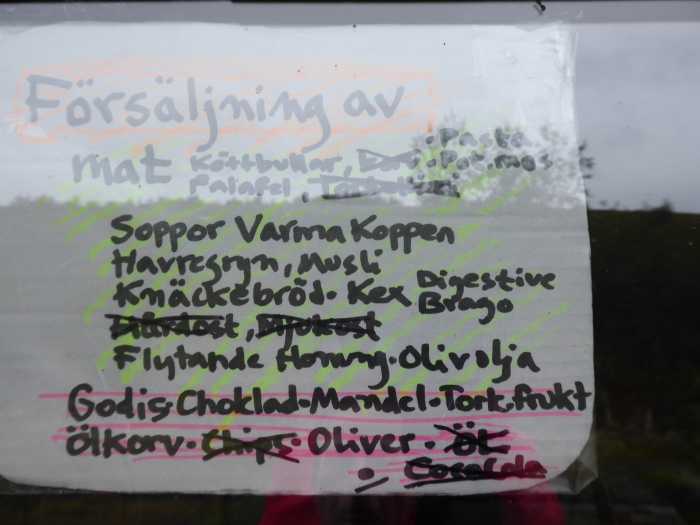 Försäljning av
mat Köttbullar, · Pasta · Pot.mos
Falafel,
Soppor Varma Koppen
Havregryn, Musli
Knäckebröd · Kex Digestive Brago
Hårdost, Mjukost
Flytande Honung · Olivolja
Godis Choklad · Mandel · Tork.frukt
Ölkorv · Chips · Oliver · Öl
· CocaCola